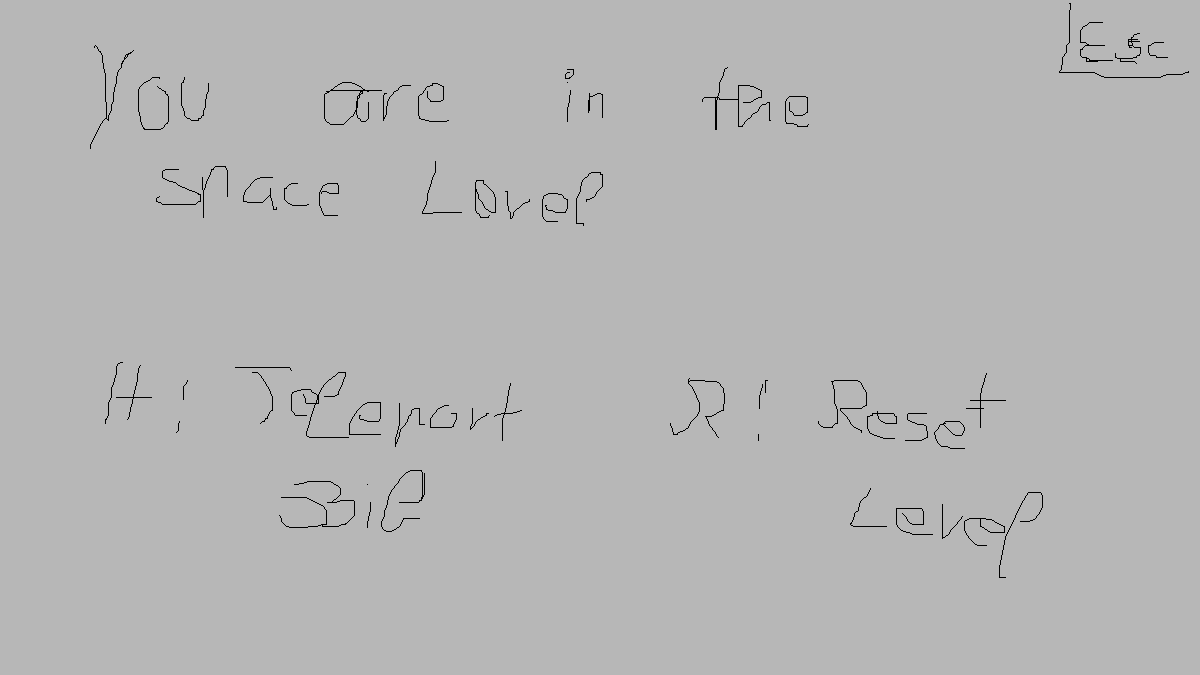 Esc
You are in the
space Level
H: Teleport
Bil
R: Reset
Level